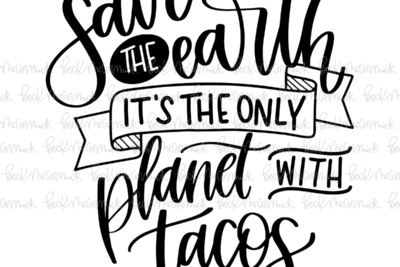 Save
THE earth
IT'S THE ONLY
planet WITH
tacos